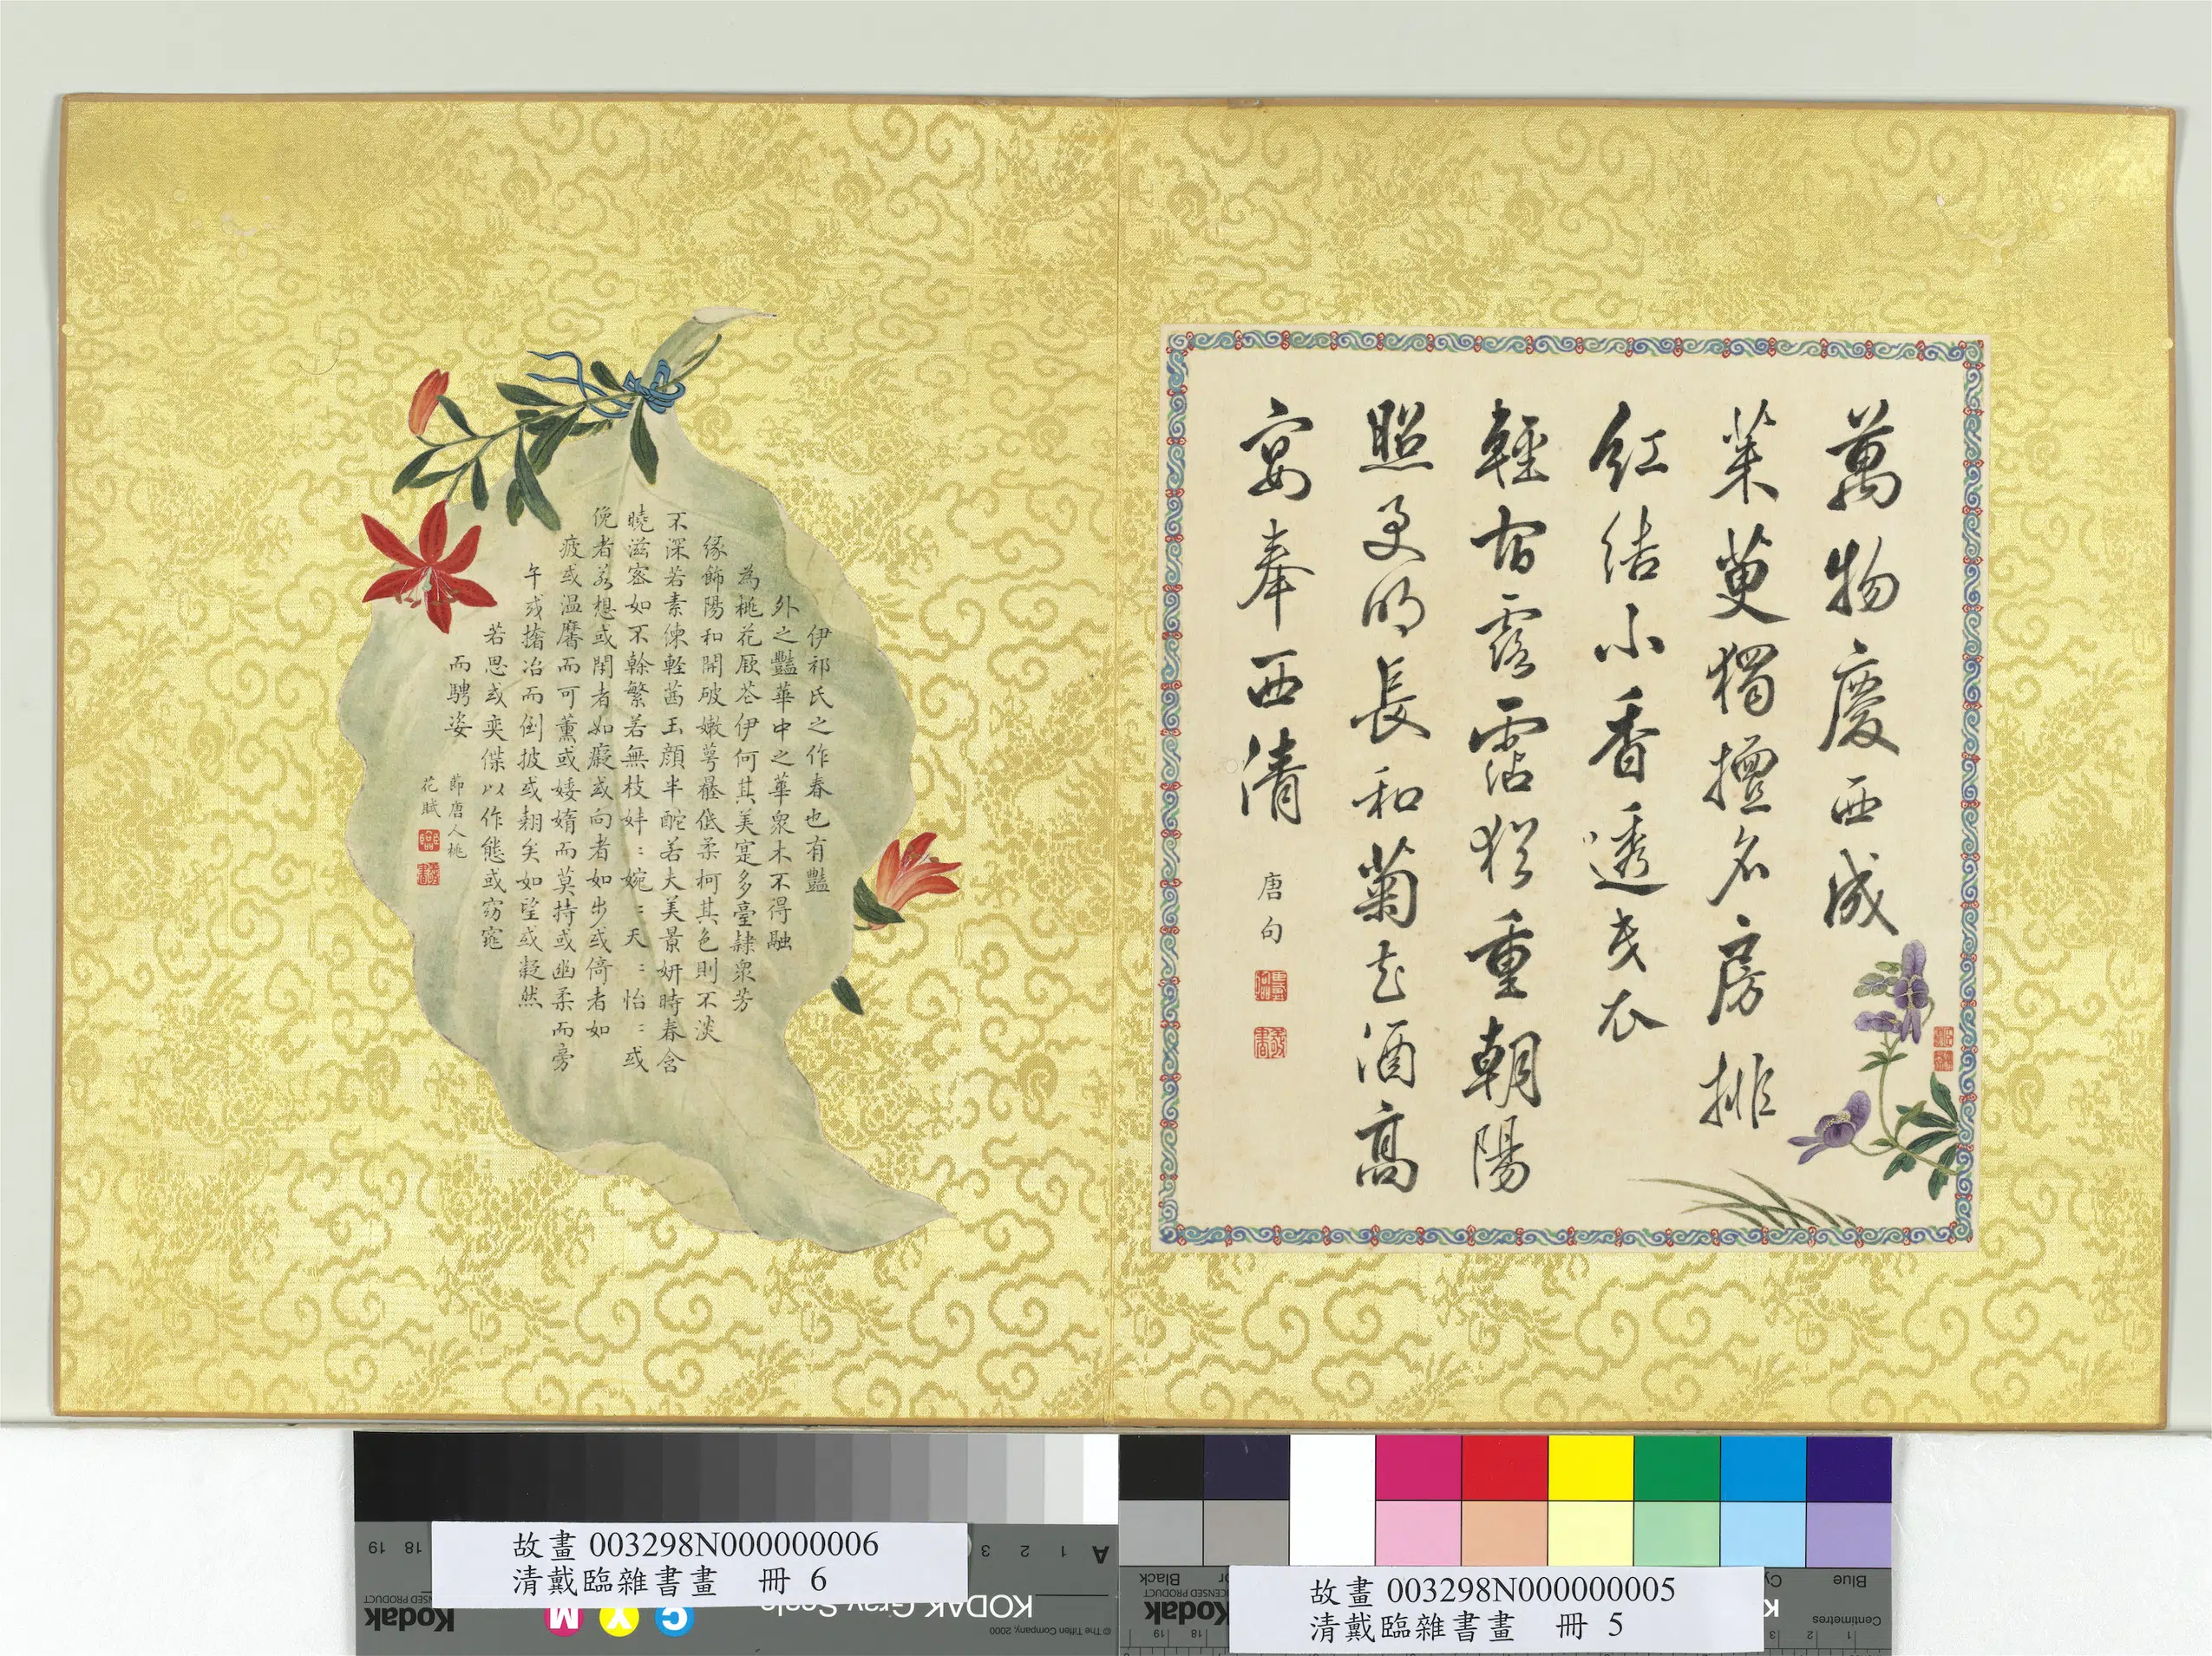 萬物慶西成
茱萸獨擅名房排
紅結小香透夾衣
輕宿露霑猶重朝陽
照更明長和菊花酒高
宴奉西清
唐句
伊祁氏之作春也有豔
外之豔華中之華眾木不得融
為桃花厥花伊何其美寔多臺隸眾芳
緣飾陽和開破嫩萼蕤低柔柯其色則不淡
不深若素練輕茜玉顏半酡若夫美景妍時春含
曉滋密如不榦繁若無枝妦:婉:夭:怡:或
俛者若想或閒者如癡或向者如步或倚者如
疲或溫黁而可薰或婑媠而莫持或幽柔而旁
午或撦冶而倒披或翹矣如望或凝然
若思或奕傑以作態或窈窕
而騁姿
節唐人桃
花賦
故畫 003298N000000006
清戴臨雜書畫 冊 6
故畫 003298N000000005
清戴臨雜書畫 冊 5
A 1 2 3
18 19
M Y C
KODAK Gray Scale
Kodak
© The Tiffen Company, 2000
Kodak
LICENSED PRODUCT
Black
Blue
Centimetres